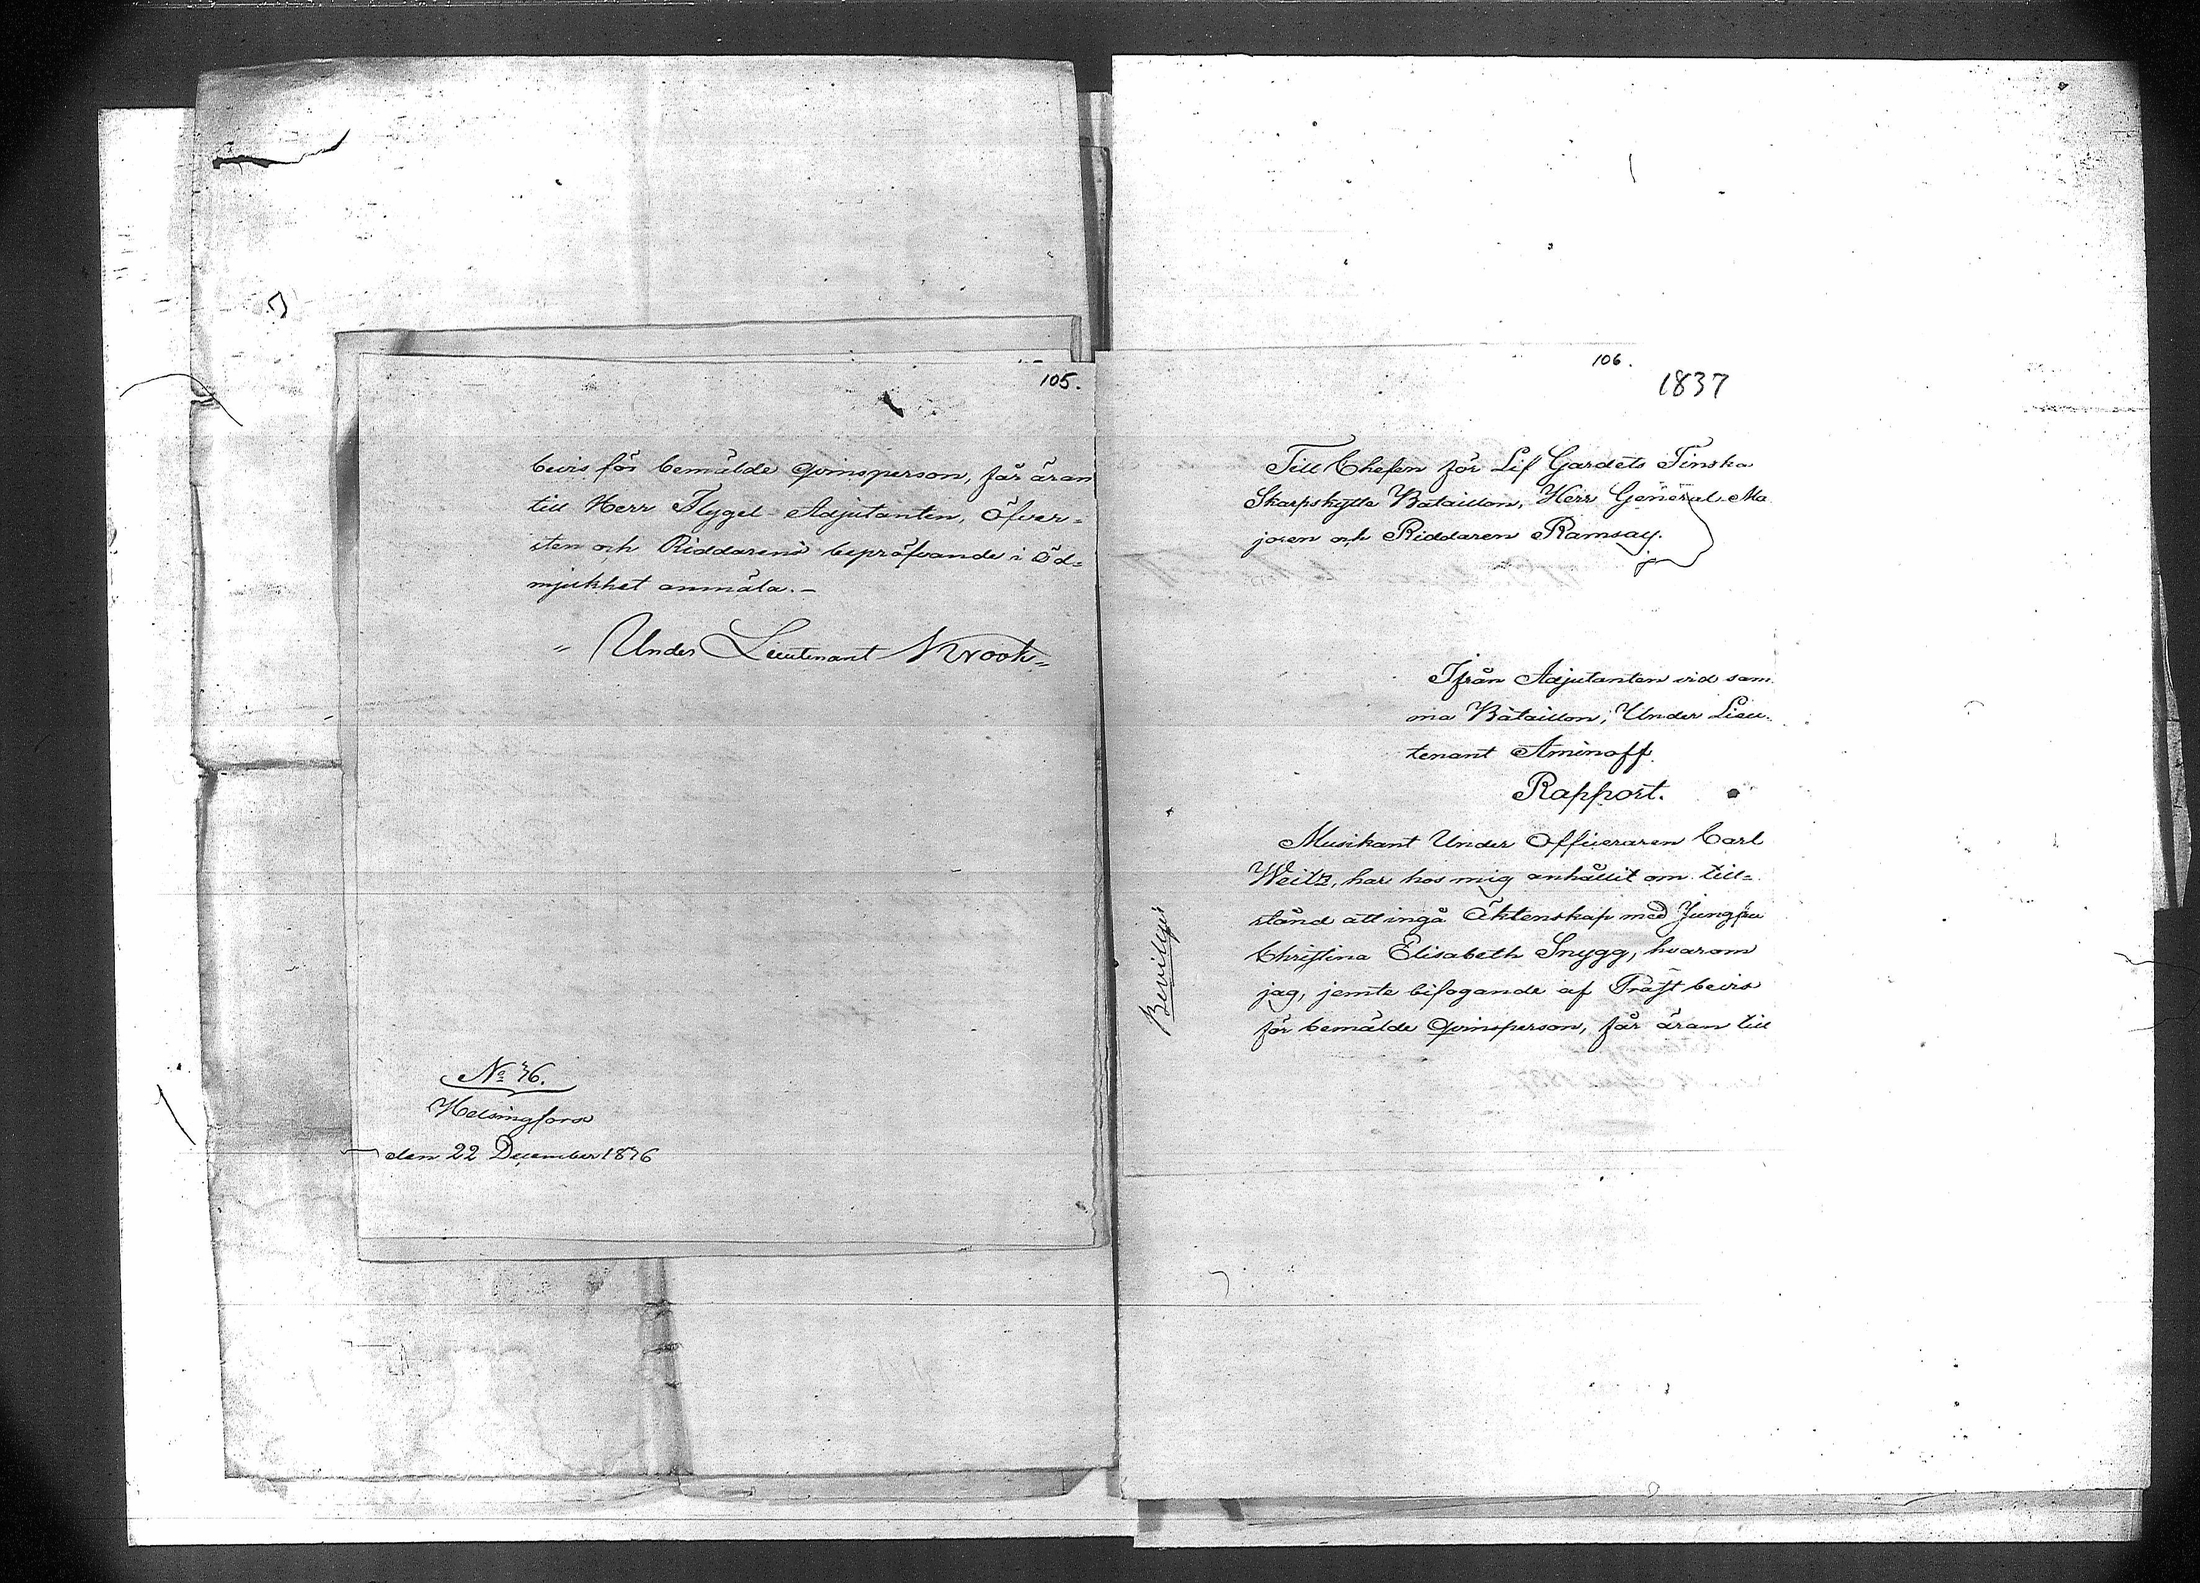 105.
bevis för bemälde qvinsperson, får äran
till Herr Flygel-Adjutanten, Öfver=
sten och Riddarens bepröfvande i Öd=
mjukhet anmäla.—
" Under Lieutenant Krook"
No 36.
Helsingfors
den 22 December 1836
106.
1837
Till Chefen för Lif Gardets Finska
Skarpskytte Bataillon, Herr General-Ma
joren och Riddaren Ramsay.
Ifrån Adjutanten vid sam
ma Bataillon, Under Lieu=
tenant Aminoff.
Rapport.
Musikant Under Officeraren Carl
Weitz, har hos mig anhållit om till=
stånd att ingå Äktenskap med Jungfru
Christina Elisabeth Snygg, hvarom
jag, jemte bifogande af Präst bevis
för bemälde qvinsperson, får äran till
Beviljas